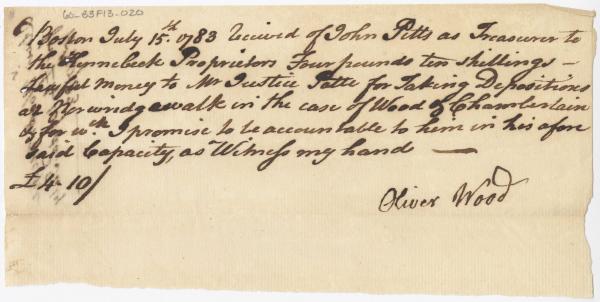 60-83F13-020
Boston July 15th 1783 Recived of John Pitts as Treasurer to
the Kennebeck Proprietors Four pounds ten shillings –
Lawful money to Mr Justice Potte for Taking Depositions
at Norridgewalk in the case of Wood & Chamberlain
& for wch I promise to be accountable to him in his afore
said Capacity, as Witness my hand —
£4-10/
Oliver Wood